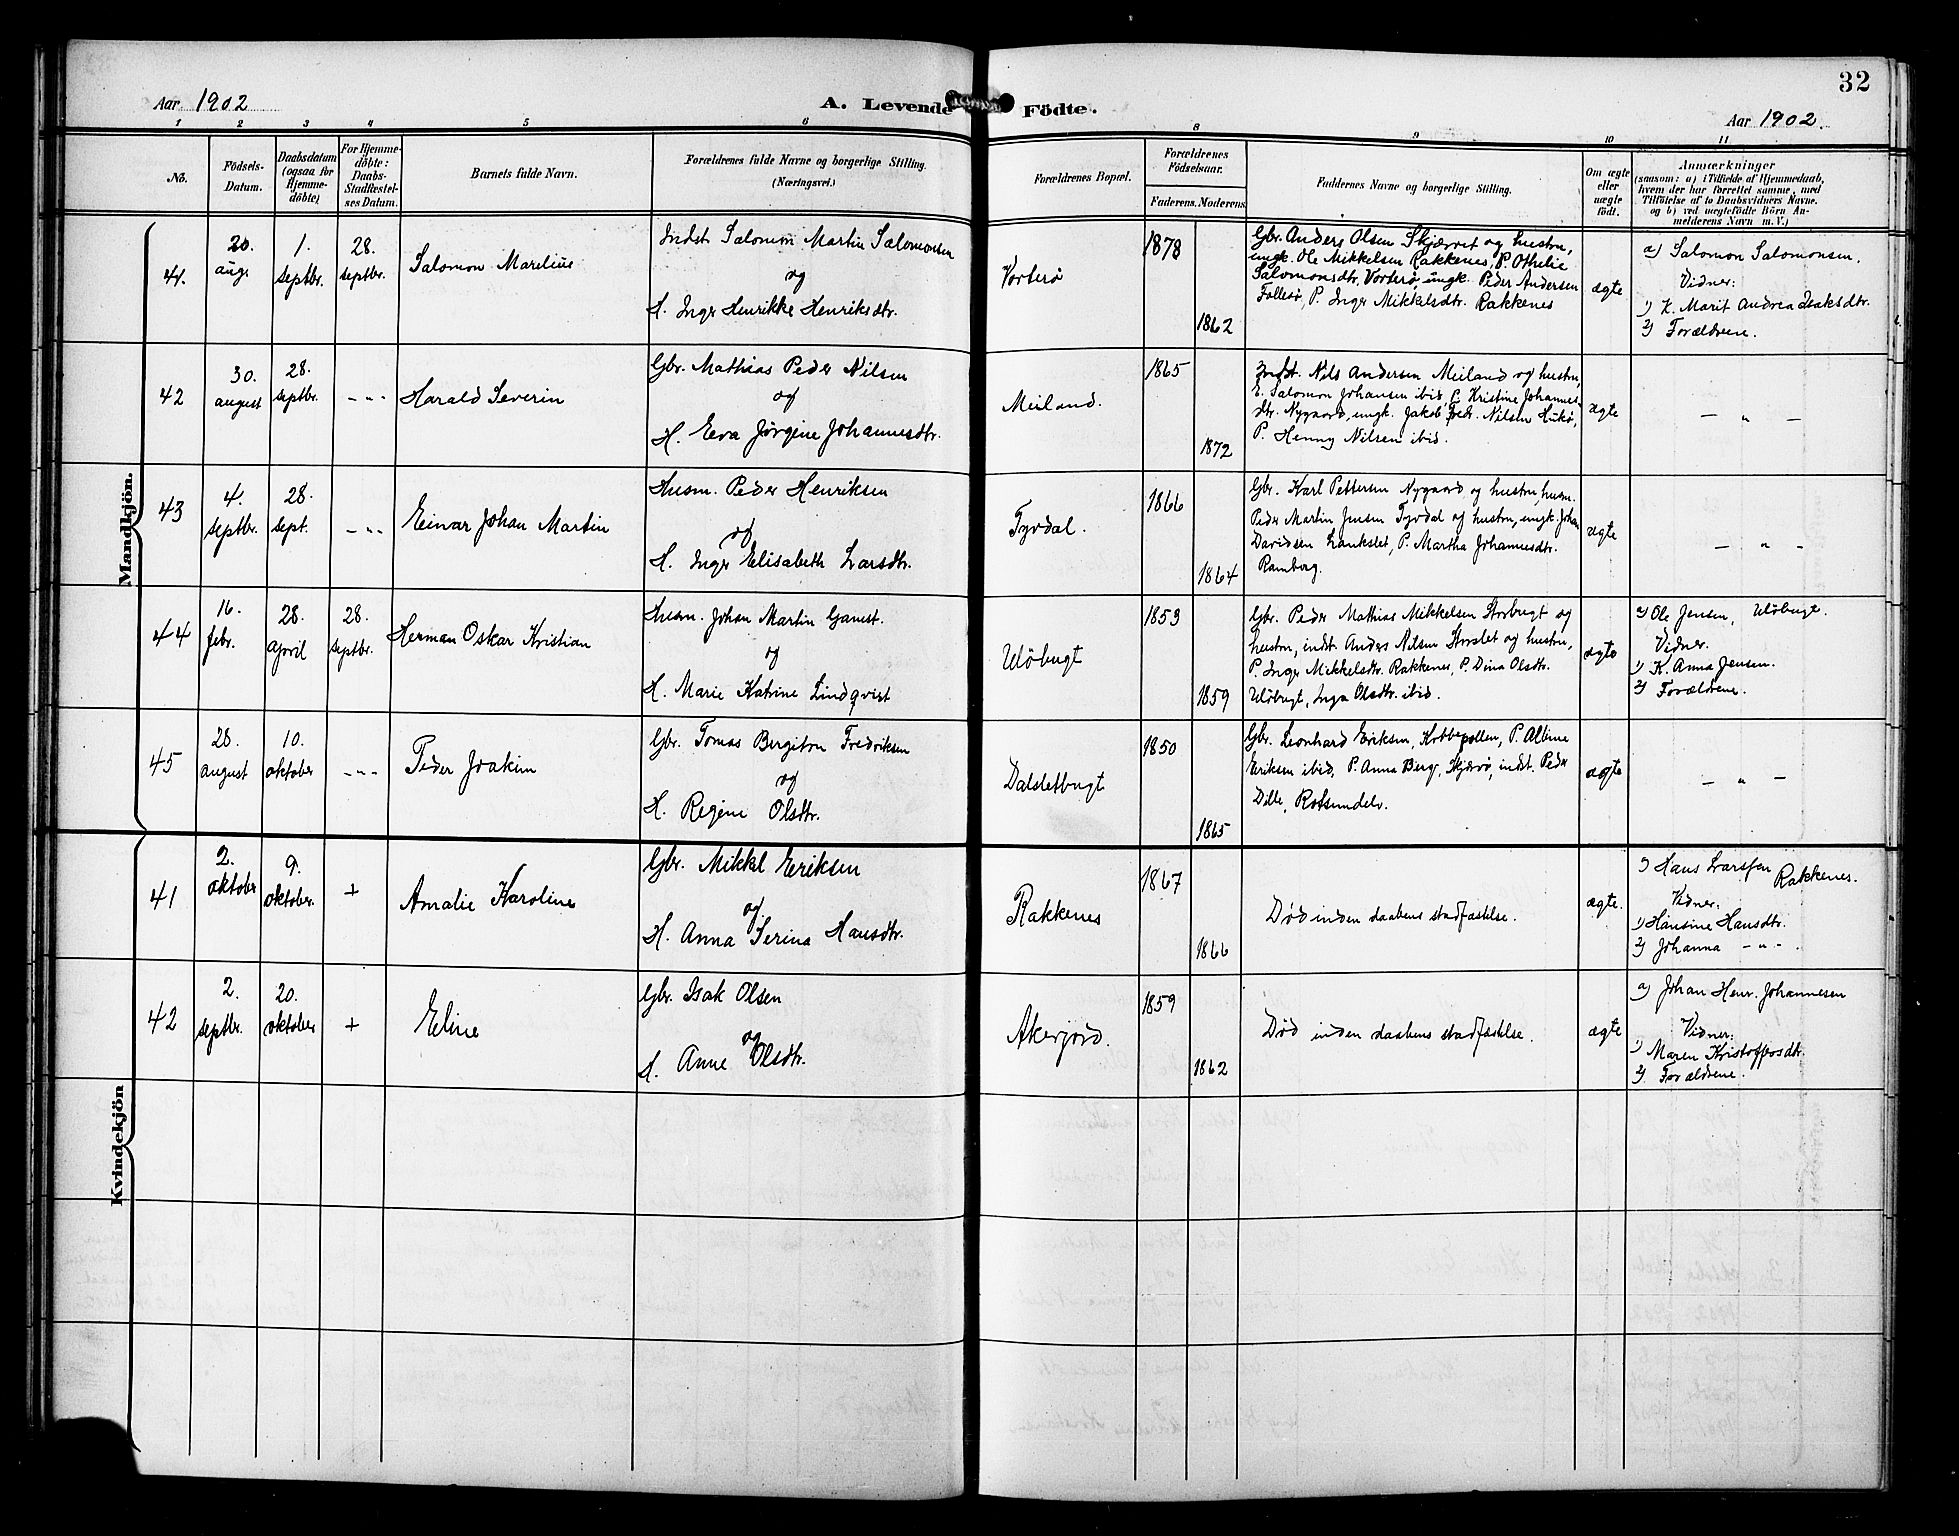 32
Aar 1902
A. Levende Födte.
Aar 1902.
1 2 3 4 5 6 8 9 10 11
No.
Födsels-
Datum.
Daabsdatum
(ogsaa for
Hjemme-
döbte)
For Hjemme-
döbte:
Daabs-
Stadfæstel-
ses Datum.
Barnets fulde Navn.
Forældrenes fulde Navne og borgerlige Stilling.
(Næringsvei.)
Forældrenes Bopæl.
Forældrenes
Födselsaar.
Faderens. Moderens.
Faddernes Navne og borgerlige Stilling.
Om ægte
eller
uægte
födt.
Anmærkninger
(saasom: a) i Tilfælde af Hjemmedaab,
hvem der har forrettet samme, med
Tilföielse af to Daabsvidners Navne.
og b) ved uægtefödte Börn An-
melderens Navn m.V.)
Mandkjön.
41.
20.
aug.
1.
septbr.
28.
septbr.
Salomon Marelius
Indst. Salomon Martin Salomonsen
og
H. Inger Henrikke Henriksdtr.
Vorterø
1878
1862
Gbr. Anders Olsen Skjærvet og hustru,
ungk. Ole Mikkelsen Rakkenes, P. Othelie
Salomonsdtr. Vorterø, ungk. Peder Andersen
Follesø, P. Inger Mikkelsdtr. Rakkenes
ægte
a) Salomon Salomonsen.
Vidner:
1) K. Marit Andrea Isaksdtr.
2) Forældrene.
42
30.
august
28.
septbr.
- " -
Harald Severin
Gbr. Mathias Peder Nilsen
og
H. Eva Jørgine Johannesdtr.
Meiland.
1865
1872
Indst. Nils Andersen Meiland og hustru,
E. Salomon Johansen ibid, P. Kristine Johannes-
dtr. Nygaard, ungk. Jakob Fredr. Nilsen Hukø,
P. Henny Nilsen ibid.
ægte
- " -
43
4.
septbr.
28.
sept.
- " -
Einar Johan Martin
Husm. Peder Henriksen
og
H. Inger Elisabeth Larsdtr.
Tyvdal.
1866
1864
Gbr. Karl Pettersen Nygaard og hustru, husm.
Peder Martin Jensen Tyvdal og hustru, ungk. Johan
Davidsen Lankslet, P. Martha Johannesdtr.
Ramberg.
ægte
- " -
44
16.
febr.
28.
april
28.
septbr.
Herman Oskar Kristian
Husm. Johan Martin Gamst.
og
H. Marie Katrine Lindqvist
Uløbugt
1853
1859
Gbr. Peder Mathias Mikkelsen Storbugt og
hustru, indst. Anders Nilsen Storslet og hustru,
P. Inger Mikkelsdtr. Rakkenes, P. Dina Olsdtr.
Uløbugt, Inga Olsdtr. ibid.
ægte
a) Ole Jensen, Uløbugt.
Vidner.
1) K. Anna Jensen.
2) Forældrene.
45
28.
august
10.
oktober
- " -
Peder Joakim
Gbr. Tomas Bergiton Fredriksen
og
H. Regine Olsdtr.
Dalsletbugt
1850
1865
Gbr. Leonhard Eriksen, Kobbepollen, P. Albine
Eriksen ibid, P. Anna Berg, Skjærvø, indst. Peder
Dille, Rotsundelv.
ægte
- " -
Kvindekjön
41
2.
oktober
9.
oktober.
+
Amalie Karoline
Gbr. Mikkel Eriksen
og
H. Anna Serina Hansdtr.
Rakkenes
1867
1866
Død inden daabens stadfæstelse.
ægte.
Hans Larssen Rakkenes.
Vidner:
1) Hansine Hansdtr.
2) Johanna - " - .
42
2.
septbr.
20.
oktober
+
Eline
Gbr. Isak Olsen
og
H. Anne Olsdtr.
Akerjord.
1859
1862
Død inden daabens stadfæstelse.
ægte
a) Johan Henr. Johannesen
Vidner:
1) Maren Kristoffersdtr.
2) Forældrene.